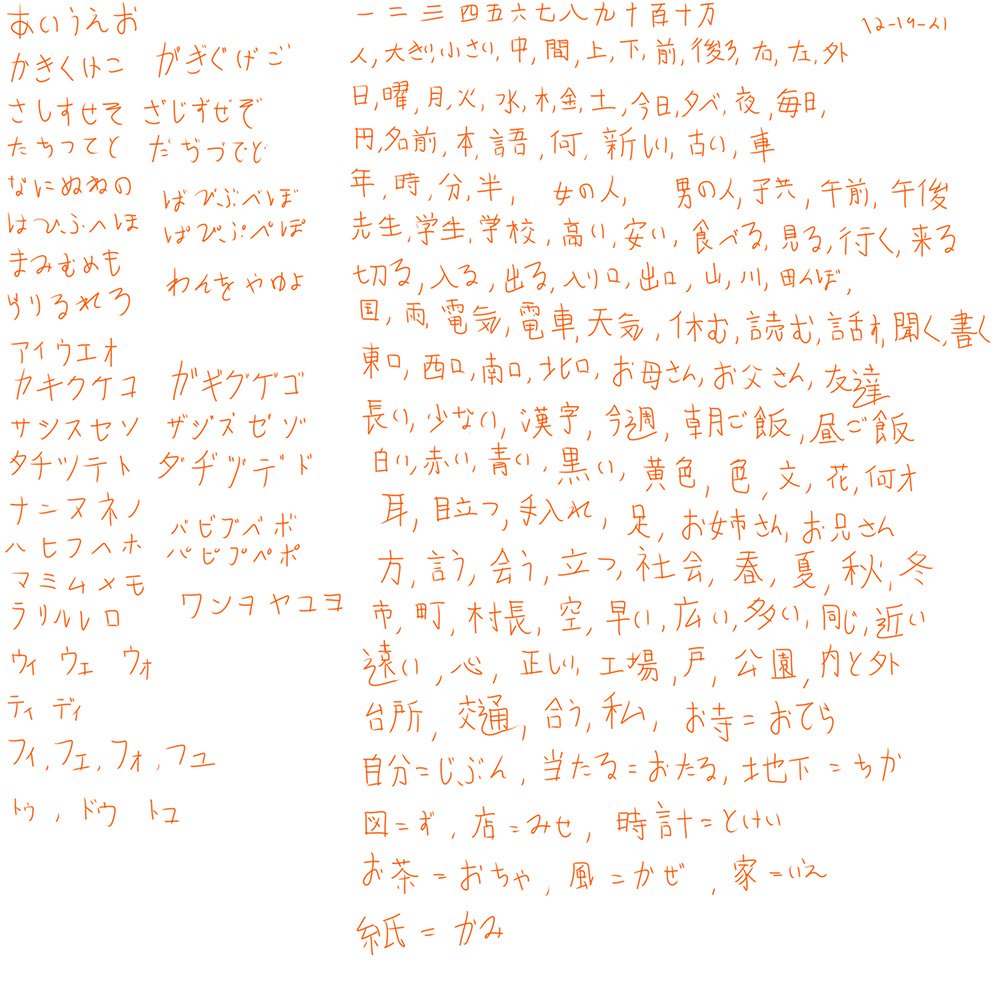 あいうえお
かきくけこ がぎぐげご
さしすせそ ざじずぜぞ
たちつてと だぢづでど
なにぬねの
はひふへほ ばびぶべぼ
ぱぴぷぺぽ
まみむめも
らりるれろ わんをやゆよ
アイウエオ
カキクケコ ガギグゲゴ
サシスセソ ザジズゼゾ
タチツテト ダヂヅデド
ナニヌネノ
ハヒフヘホ バビブベボ
パピプペポ
マミムメモ
ラリルレロ ワンヲヤユヨ
ウィ ウェ ウォ
ティ ディ
フィ,フェ,フォ,フュ
トゥ,ドウ トュ
一二三四五六七八九十百十万
12-19-21
人,大きい,小さい,中,間,上,下,前,後ろ,右,左,外
日,曜,月,火,水,木,金,土,今日,夕べ,夜,毎日,
円,名前,本,語,何,新しい,古い,車
年,時,分,半, 女の人, 男の人,子共,午前,午後
先生,学生,学校,高い,安い,食べる,見る,行く,来る
切る,入る,出る,入り口,出口,山,川,田んぼ,
国,雨,電気,電車,天気,休む,読む,話す,聞く,書く
東口,西口,南口,北口,お母さん,お父さん,友達
長い,少ない,漢字,今週,朝ご飯,昼ご飯
白い,赤い,青い,黒い,黄色,色,文,花,何才
耳,目立つ,手入れ,足,お姉さん,お兄さん
方,言う,会う,立つ,社会,春,夏,秋,冬
市,町,村長,空,早い,広い,多い,同じ,近い
遠い,心,正しい,工場,戸,公園,内と外
台所,交通,合う,私,お寺=おてら
自分=じぶん,当たる=あたる,地下=ちか
図=ず,店=みせ,時計=とけい
お茶=おちゃ,風=かぜ,家=いえ
紙=かみ